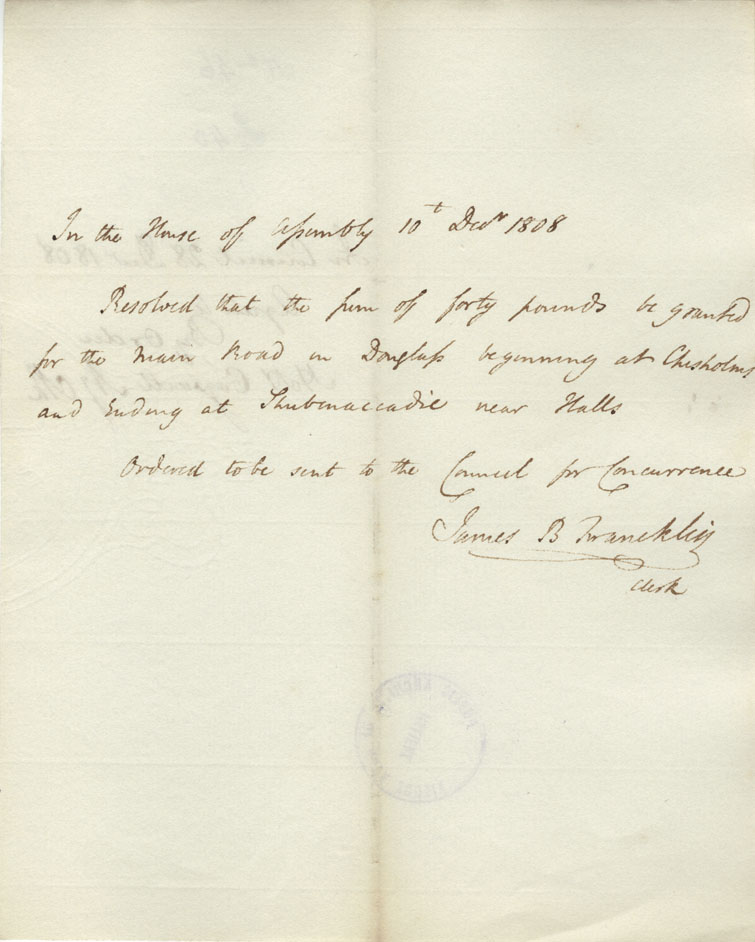 In the House of Assembly 10t Decr 1808
Resolved that the sum of forty pounds be granted
for the Main Road in Douglass beginning at Chisholms
and Ending at Shubenaccadie near Halls
Ordered to be sent to the Council for Concurrence
James B Francklin
Clerk